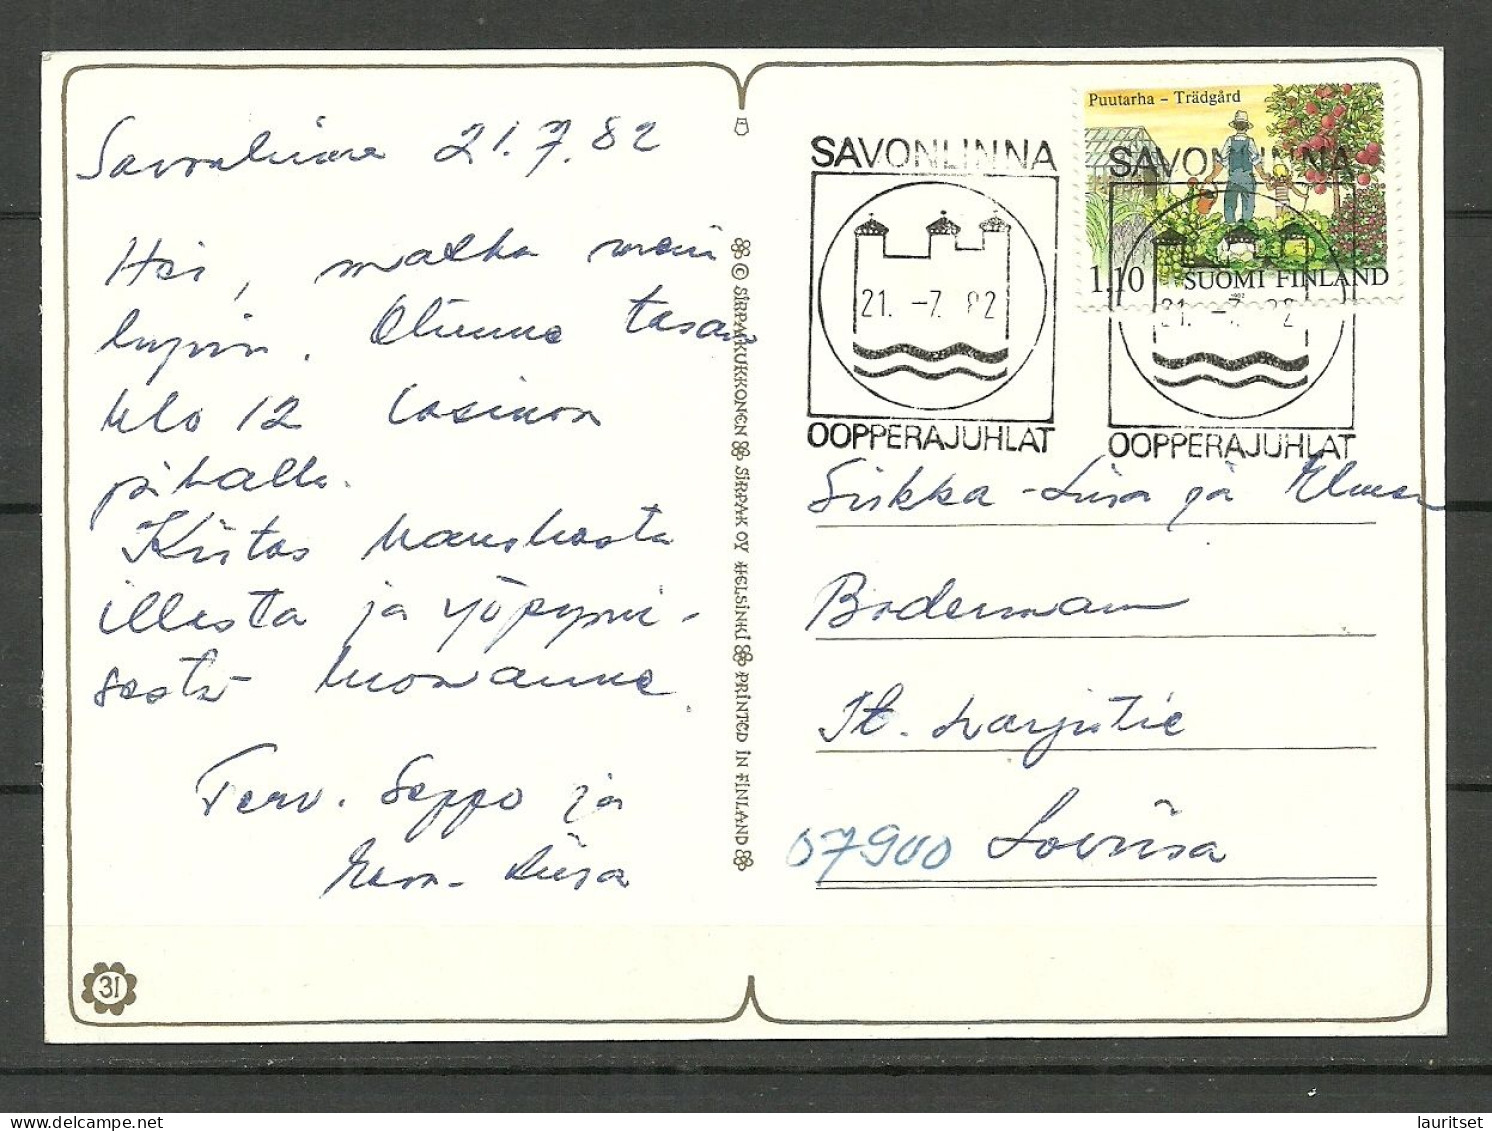 Savonlinna 21.7.82
Hei, matka meni
hyvin. Olimme tasan
klo 12 Casinon
pihalla.
Kiitos hauskasta
illasta ja yöpymi-
sestä luonanne.
Terv. Seppo ja
Liisa
31
© SIRPA KUKKONEN SIRPAK OY HELSINKI PRINTED IN FINLAND
Puutarha - Trädgård
1,10 SUOMI FINLAND
1982
SAVONLINNA
21. -7. 82
OOPPERAJUHLAT
SAVONLINNA
21. -7. 82
OOPPERAJUHLAT
Sirkka-Liisa ja Elmer
Boderman
It. Harjutie
07900 Loviisa
lauritset